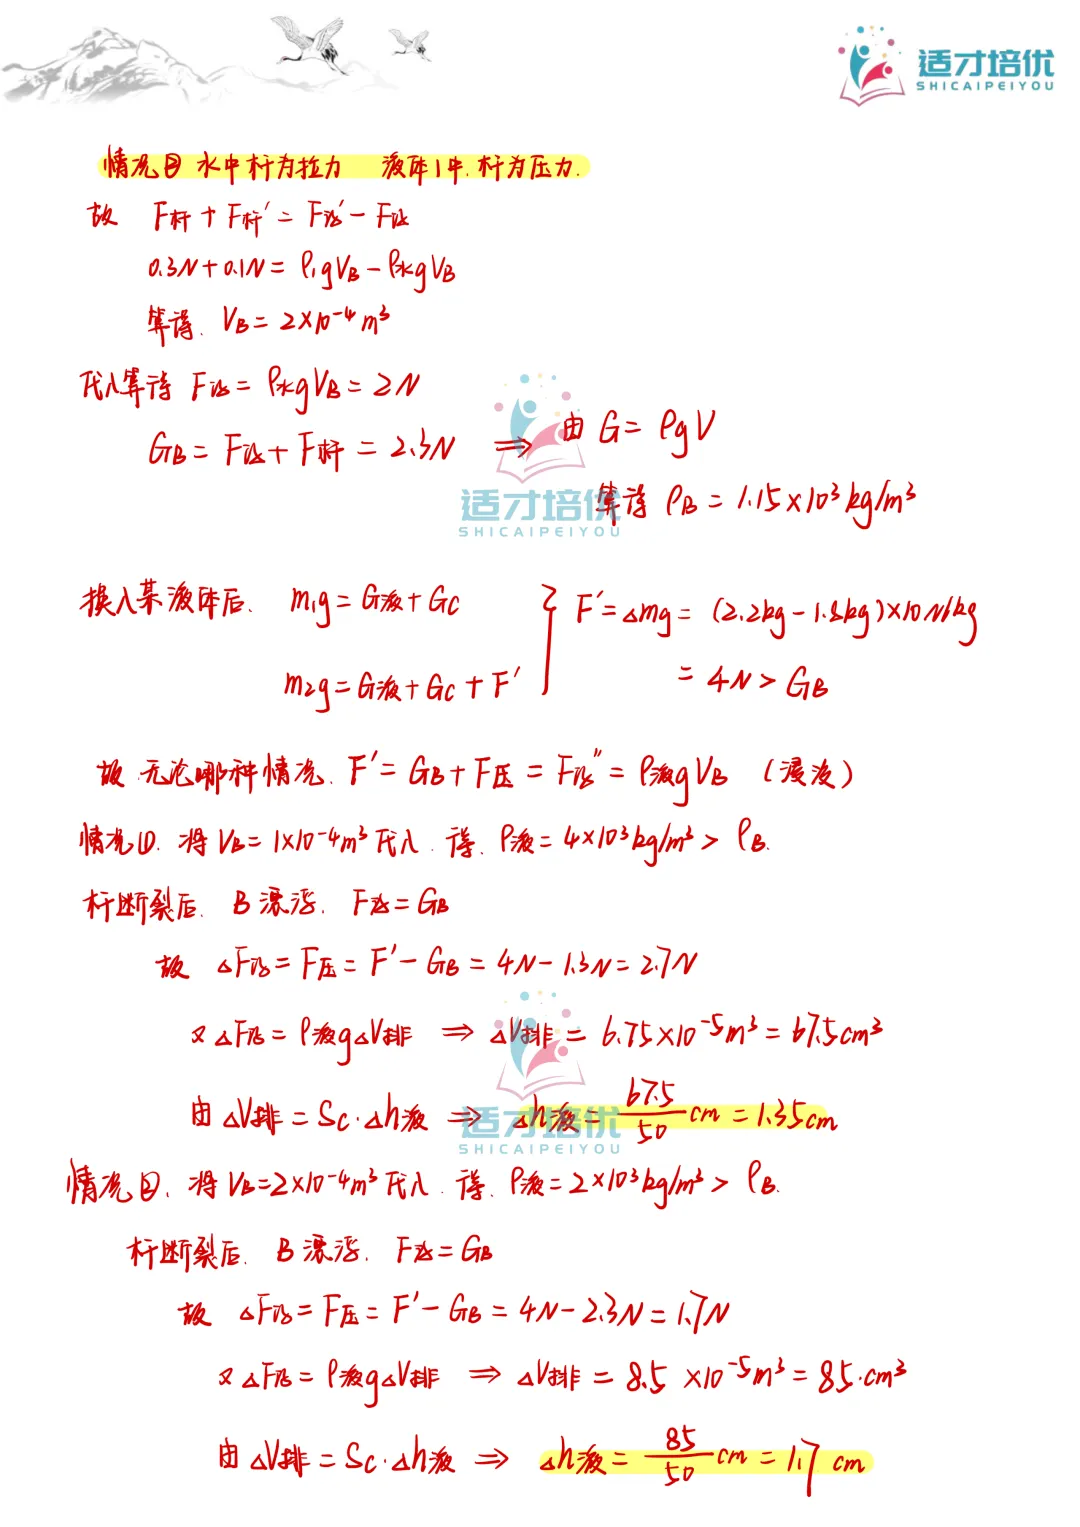 适才培优
SHICAIPEIYOU
情况② 水中杆为拉力 液体1中.杆为压力.
故 F杆+F杆'=F浮'-F浮
0.3N+0.1N=ρ₁gVB-ρ水gVB
算得. VB=2×10⁻⁴m³
代入算得 F浮=ρ水gVB=2N
GB=F浮+F杆=2.3N ⇒ 由 G=ρgV
适才培优
SHICAIPEIYOU
算得 ρB=1.15×10³kg/m³
换入某液体后. m₁g=G液+Gc
m₂g=G液+Gc+F'
F'=△mg=(2.2kg-1.8kg)×10N/kg
=4N>GB
故 无论哪种情况. F'=GB+F压=F浮''=ρ液gVB (浸没)
情况①. 将 VB=1×10⁻⁴m³代入. 得. ρ液=4×10³kg/m³>ρB.
杆断裂后. B漂浮. F浮=GB
故 △F浮=F压=F'-GB=4N-1.3N=2.7N
又△F浮=ρ液g△V排 ⇒ △V排=6.75×10⁻⁵m³=67.5cm³
由△V排=Sc·△h液 ⇒ △h液=67.5/50cm=1.35cm
适才培优
SHICAIPEIYOU
情况②. 将 VB=2×10⁻⁴m³代入. 得. ρ液=2×10³kg/m³>ρB.
杆断裂后. B漂浮. F浮=GB
故 △F浮=F压=F'-GB=4N-2.3N=1.7N
又△F浮=ρ液g△V排 ⇒ △V排=8.5×10⁻⁵m³=85.cm³
由△V排=Sc·△h液 ⇒ △h液=85/50cm=1.7cm